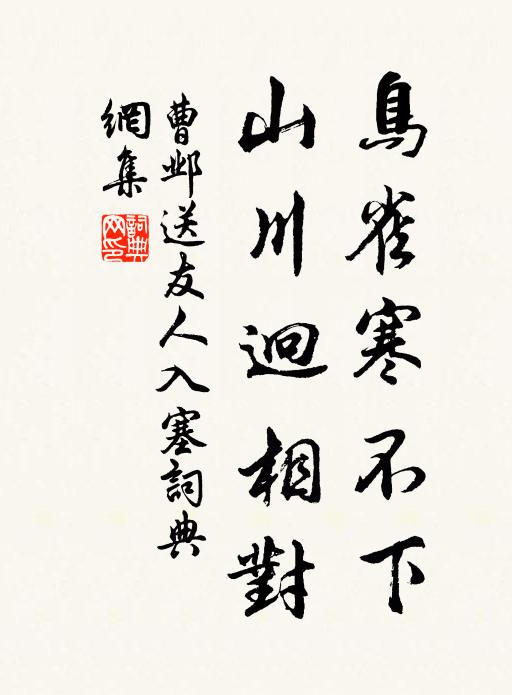 鳥雀寒不下
山川迥相對
曹邺送友人入塞詞典
網集
詞典
网印